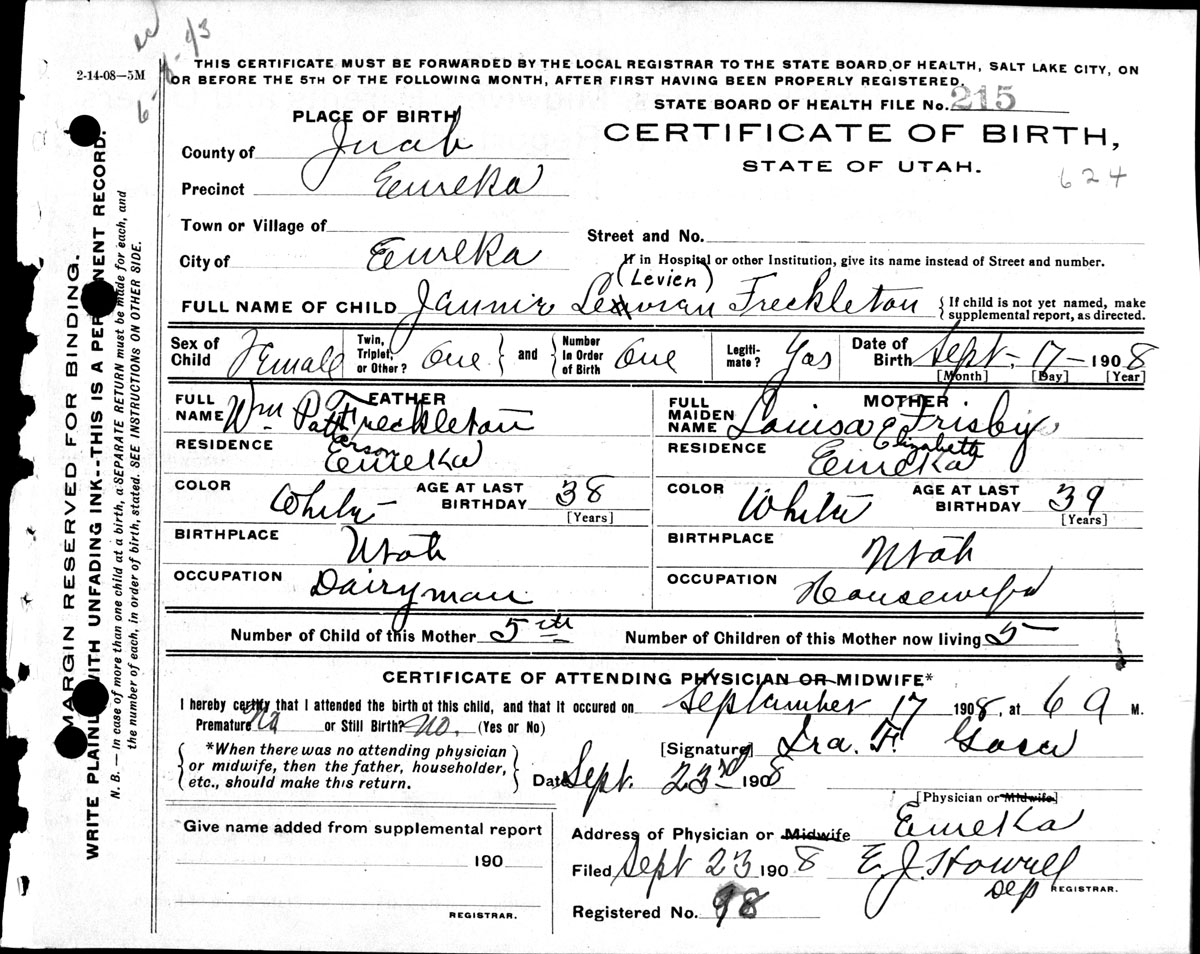 2-14-08—5M
6-
-43
THIS CERTIFICATE MUST BE FORWARDED BY THE LOCAL REGISTRAR TO THE STATE BOARD OF HEALTH, SALT LAKE CITY, ON
OR BEFORE THE 5TH OF THE FOLLOWING MONTH, AFTER FIRST HAVING BEEN PROPERLY REGISTERED.
STATE BOARD OF HEALTH FILE No. 215
PLACE OF BIRTH
CERTIFICATE OF BIRTH,
STATE OF UTAH.
624
County of Juab
Precinct Eureka
Town or Village of
Street and No.
City of Eureka
If in Hospital or other Institution, give its name instead of Street and number.
(Levien)
FULL NAME OF CHILD Freckleton
{If child is not yet named, make
supplemental report, as directed.
Sex of Child Female
Twin, Triplet, or Other? One } and { Number In Order of Birth One
Legiti-mate? Yas
Date of Birth Sept. 17 1908
[Month] [Day] [Year]
FATHER
FULL NAME Wm Patterson Freckleton
RESIDENCE Eureka
COLOR White
AGE AT LAST BIRTHDAY 38
[Years]
BIRTHPLACE Utah
OCCUPATION Dairyman
MOTHER
FULL MAIDEN NAME Louisa E Elizabeth Frisby
RESIDENCE Eureka
COLOR White
AGE AT LAST BIRTHDAY 39
[Years]
BIRTHPLACE Utah
OCCUPATION Housewife
Number of Child of this Mother 5th
Number of Children of this Mother now living 5
CERTIFICATE OF ATTENDING PHYSICIAN OR MIDWIFE*
I hereby certify that I attended the birth of this child, and that it occured on September 17 1908, at 6 a M.
Premature No or Still Birth? No. (Yes or No)
{*When there was no attending physician
or midwife, then the father, householder,
etc., should make this return.}
[Signature] Ira. F.
Date Sept. 23rd 1908
[Physician or Midwife]
Address of Physician or Midwife Eureka
Filed Sept 23 1908 E. J. Howell
Dep REGISTRAR.
Registered No. 98
Give name added from supplemental report
190
REGISTRAR.
MARGIN RESERVED FOR BINDING.
WRITE PLAINLY WITH UNFADING INK--THIS IS A PERMANENT RECORD.
N. B. — In case of more than one child at a birth, a SEPARATE RETURN must be made for each, and
the number of each, in order of birth, stated. SEE INSTRUCTIONS ON OTHER SIDE.